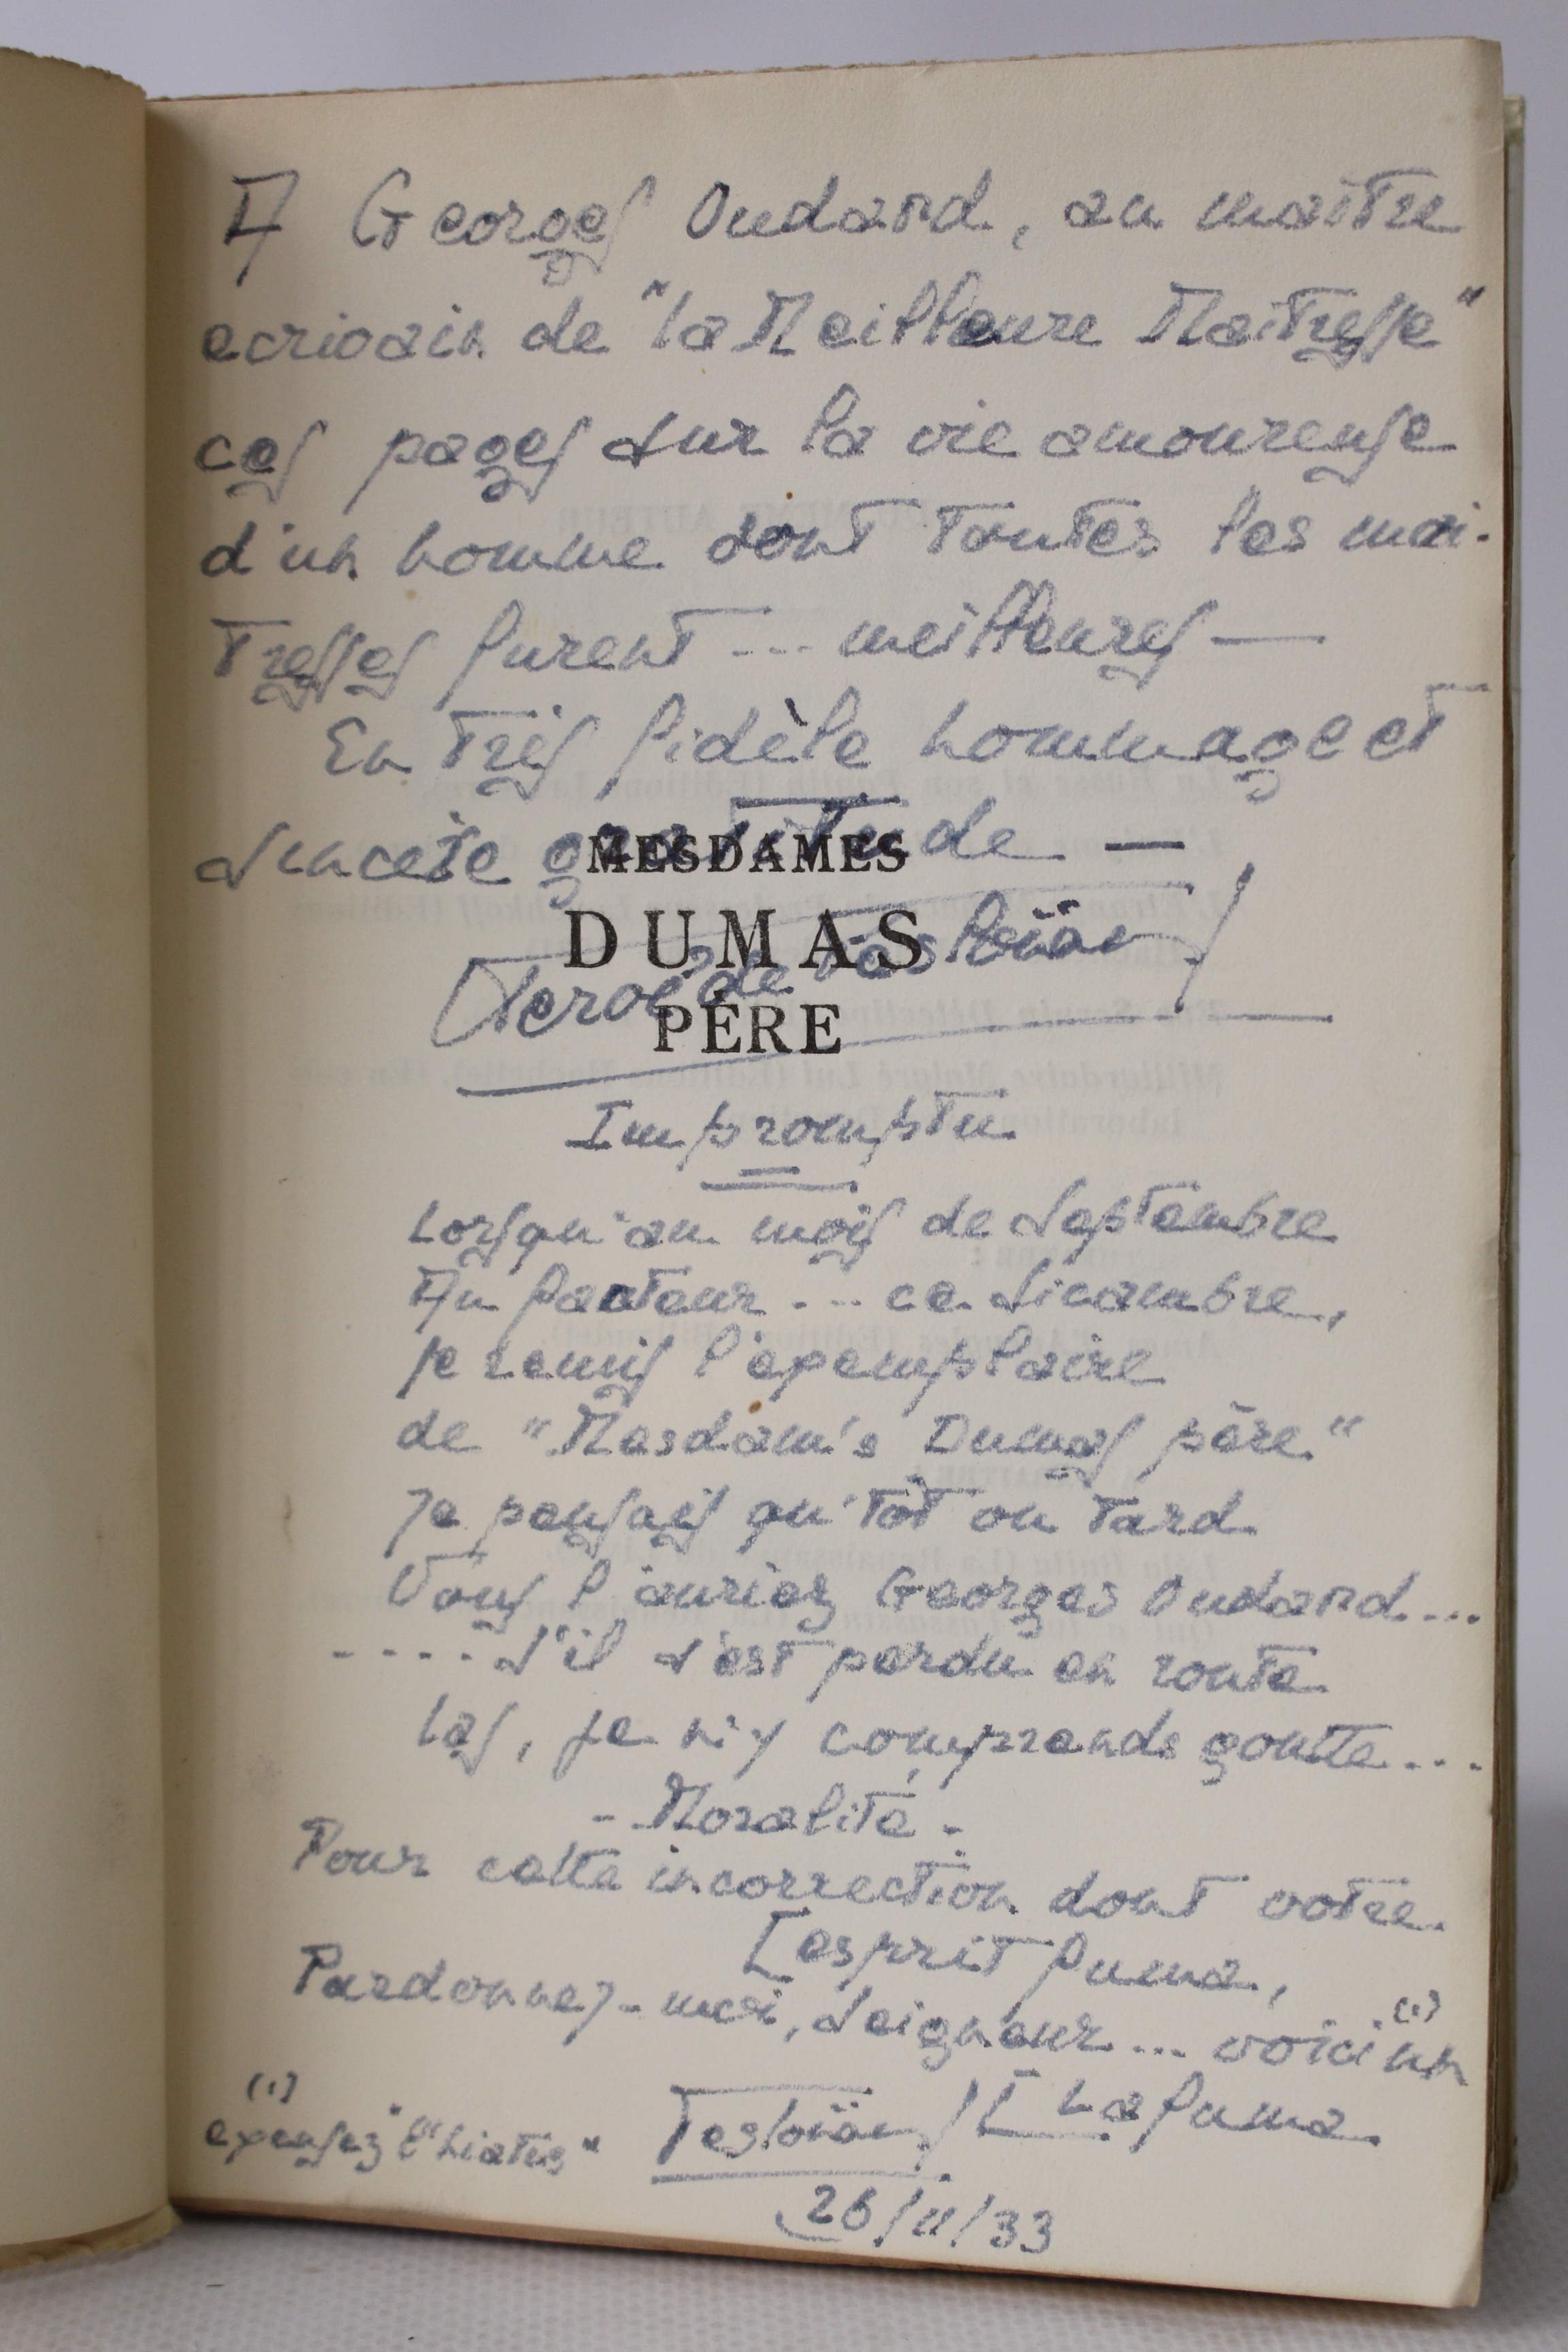 A Georges Oudard, au maître
ecrivain de "La Meilleure Maîtresse"
ces pages sur la vie amoureuse
d'un homme dont toutes les mai-
tresses furent ... meilleures —
En très fidèle hommage et
sincère gratitude —
MESDAMES
DUMAS
PÈRE
de
Impromptu
Lorsqu'au mois de Septembre
Au facteur ... ce Sicambre,
Je remis l'exemplaire
de "Mesdam's Dumas père"
Je pensais qu'tôt ou tard
Vous l'auriez Georges Oudard ...
.... S'il s'est perdu en route
Las, je n'y comprends goutte ...
- Moralité -
Pour cette incorrection dont votre
[esprit fuma,
Pardonnez-moi, Seigneur ... voici (1) un
[Lafuma
(1) excusez l'"hiatus"
26/11/33